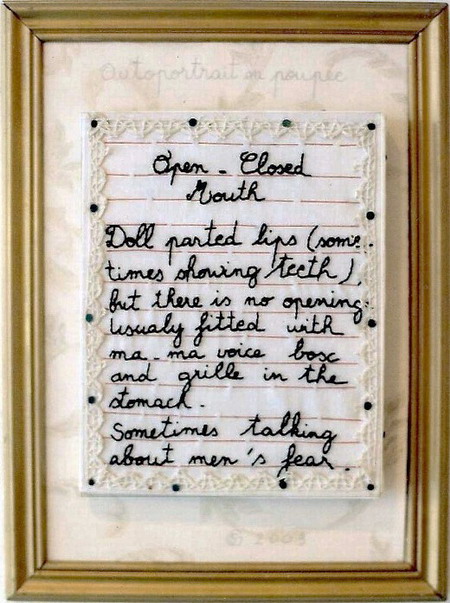 Autoportrait en poupée
Open - Closed
Mouth
Doll parted lips (some.
times showing teeth),
but there is no opening:
usualy fitted with
ma-ma voice bosc
and grille in the
stomach.
Sometimes talking
about men's fear.
© 2003